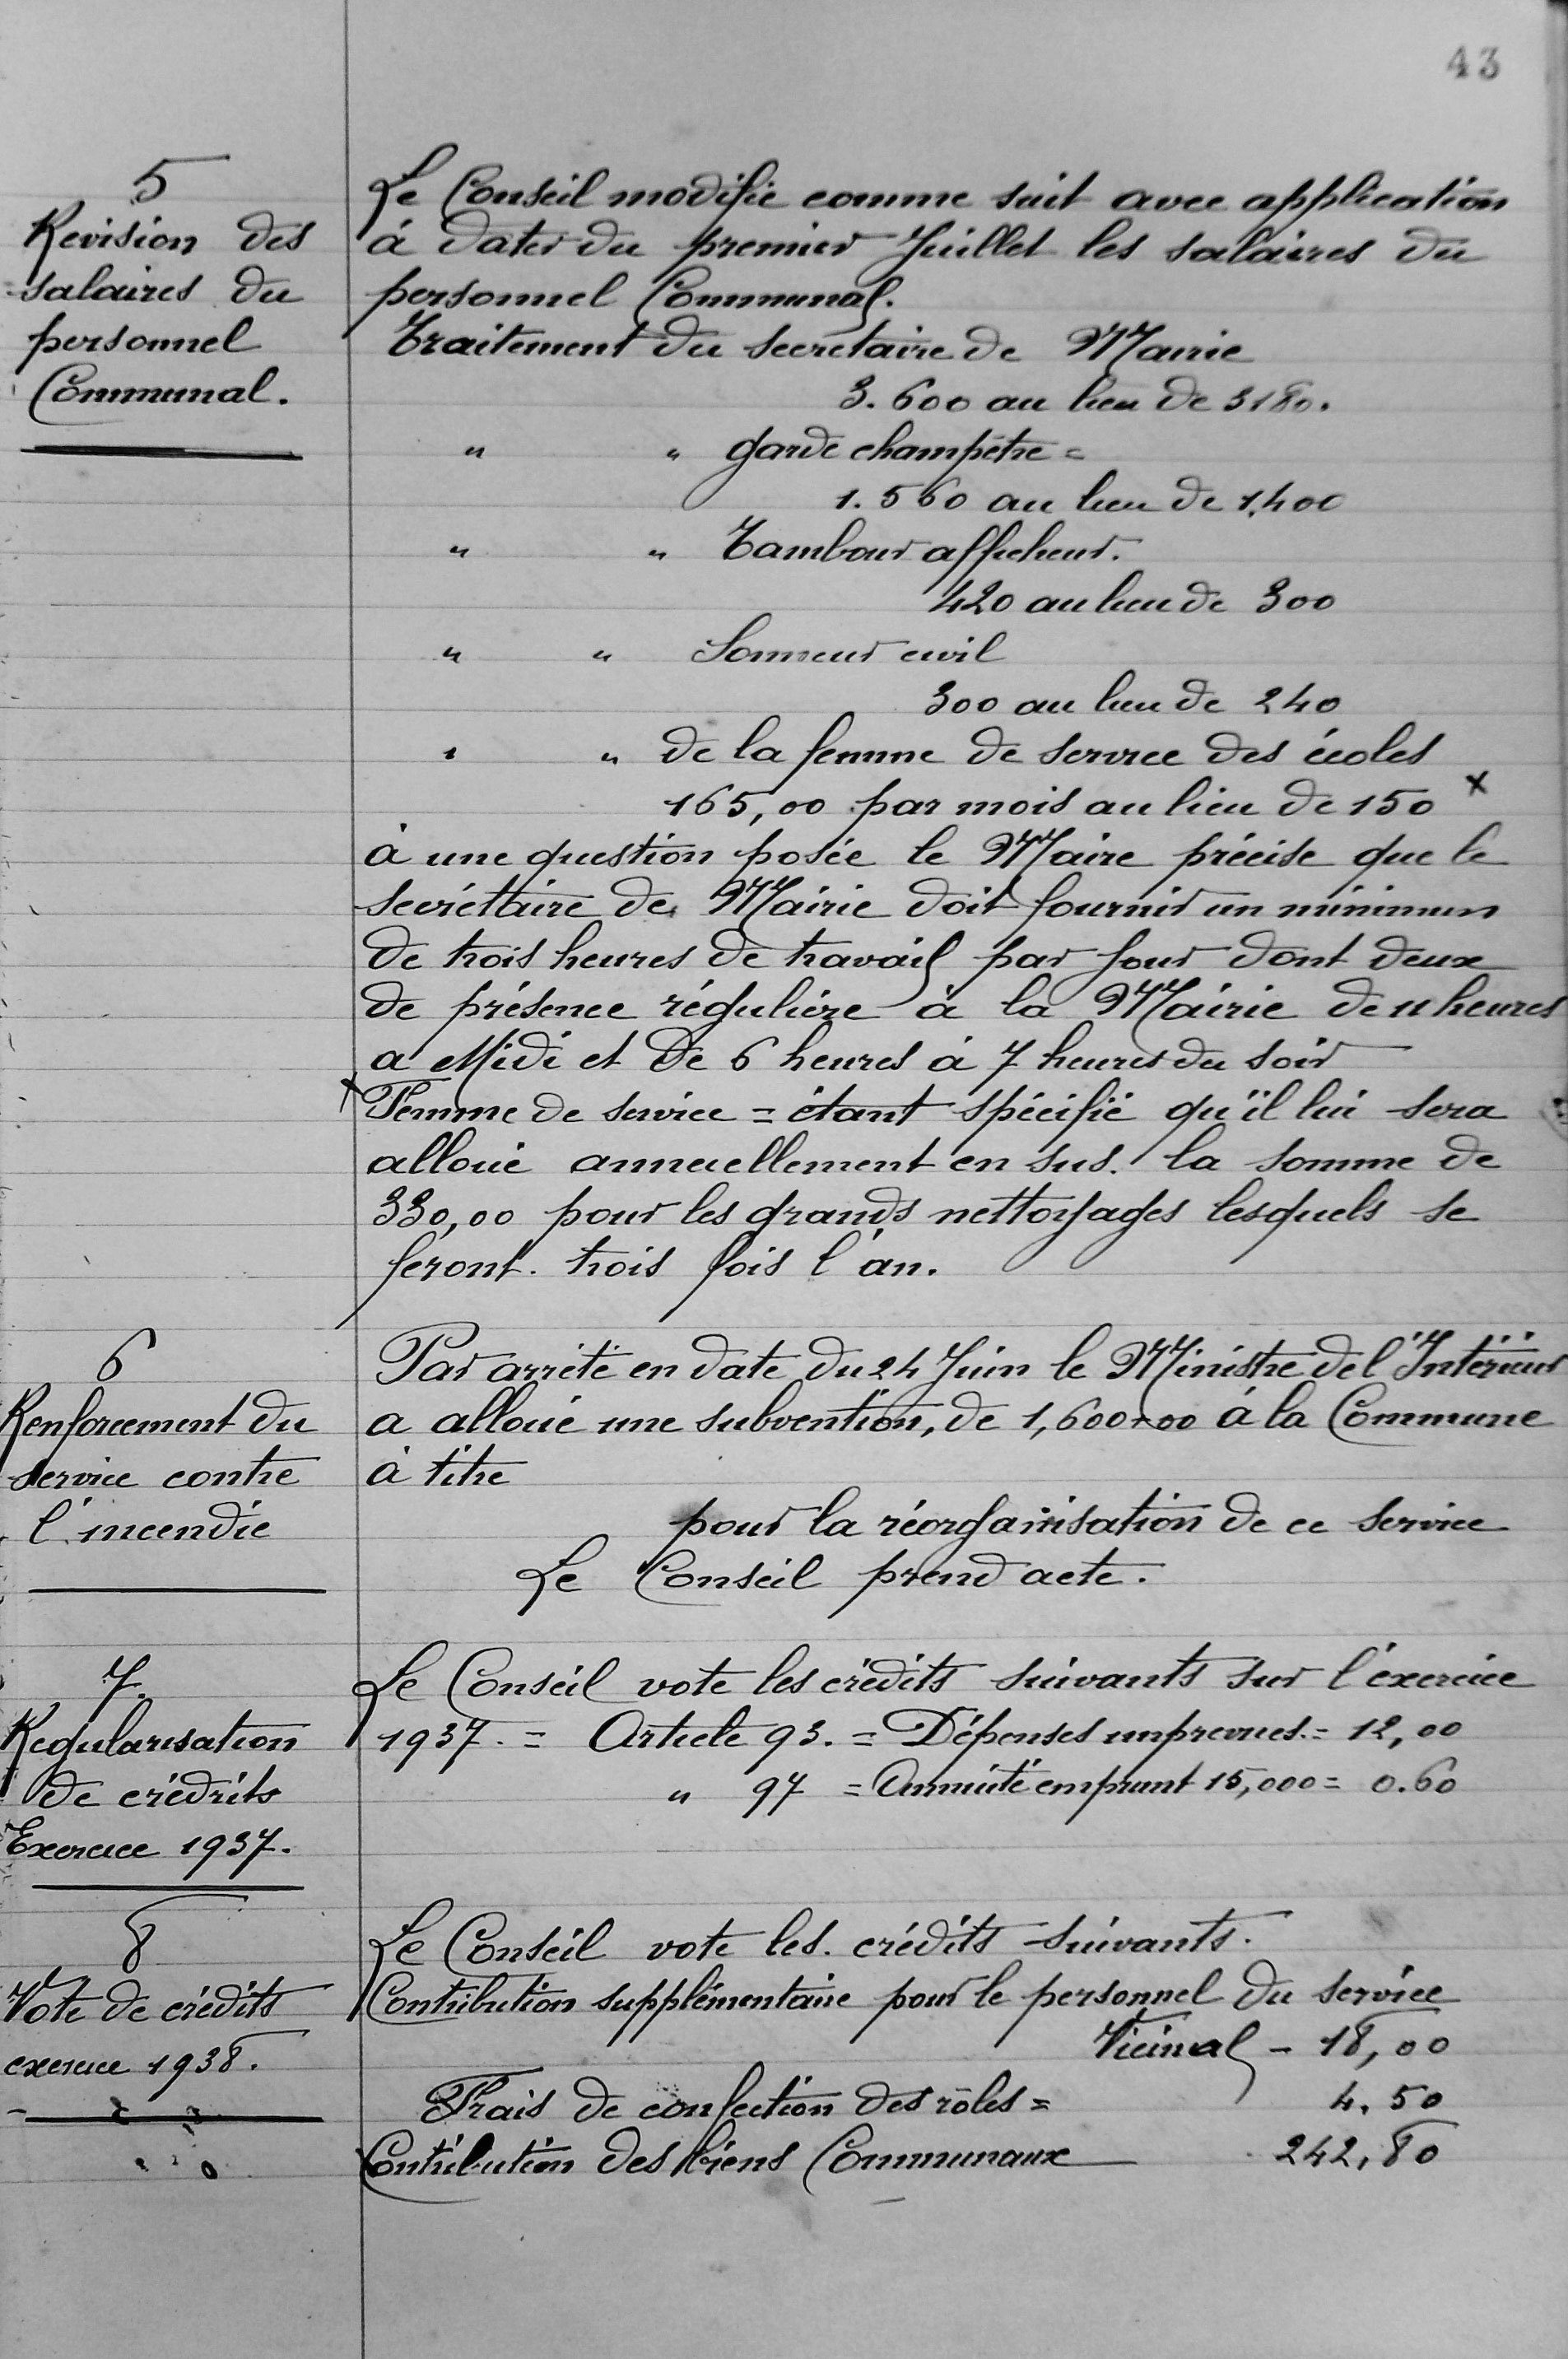 43
5
Revision des
salaires du
personnel
Communal.
Le Conseil modifie comme suit avec application
à dater du premier Juillet les salaires du
personnel Communal.
Traitement du secretaire de Mairie
3.600 au lieu de 3180.
" " garde champêtre =
1.560 au lieu de 1,400
" " Tambour afficheur.
420 au lieu de 300
" " Sonneur civil
300 au lieu de 240
" " de la femme de service des écoles
165,00 par mois au lieu de 150 x
à une question posée le Maire précise que le
secrétaire de Mairie doit fournir un minimum
de trois heures de travail par jour dont deux
de présence régulière à la Mairie de 11 heures
a Midi et de 6 heures à 7 heures du soir
x Femme de service = étant spécifié qu'il lui sera
alloué annuellement en sus. la somme de
330,00 pour les grands nettoyages lesquels se
feront. trois fois l'an.
6
Renforcement du
service contre
l'incendie
Par arrêté en date du 24 Juin le Ministre de l'Intérieur
a alloué une subvention, de 1,600.00 à la Commune
à titre
pour la réorganisation de ce service
Le Conseil prend acte.
7.
Regularisation
de crédits
Exercice 1937.
Le Conseil vote les crédits suivants sur l'exercice
1937. = Article 93. = Dépenses imprevues. = 12,00
" 97 = Annuité emprunt 15,000 = 0.60
8
Vote de crédits
exercice 1938.
Le Conseil vote les. crédits suivants.
Contribution supplémentaire pour le personnel du service
Vicinal - 18,00
Frais de confection des rôles = 4.50
Contribution des biens Communaux 242,80